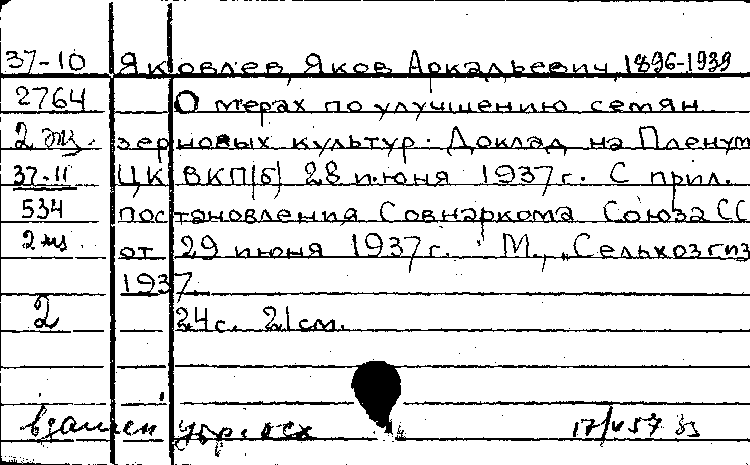 37-10 Яковлев, Яков Аркадьевич, 1896-1939
2764 О мерах по улучшению семян
2 экз. зерновых культур. Доклад на Пленум
37-11 ЦК ВКП(б) 28 июня 1937 г. С прил.
534 постановления Совнаркома Союза СС
2 экз от 29 июня 1937 г. М., „Сельхозгиз
1937.
2 24 с. 21 см.
взамен 17/V 57